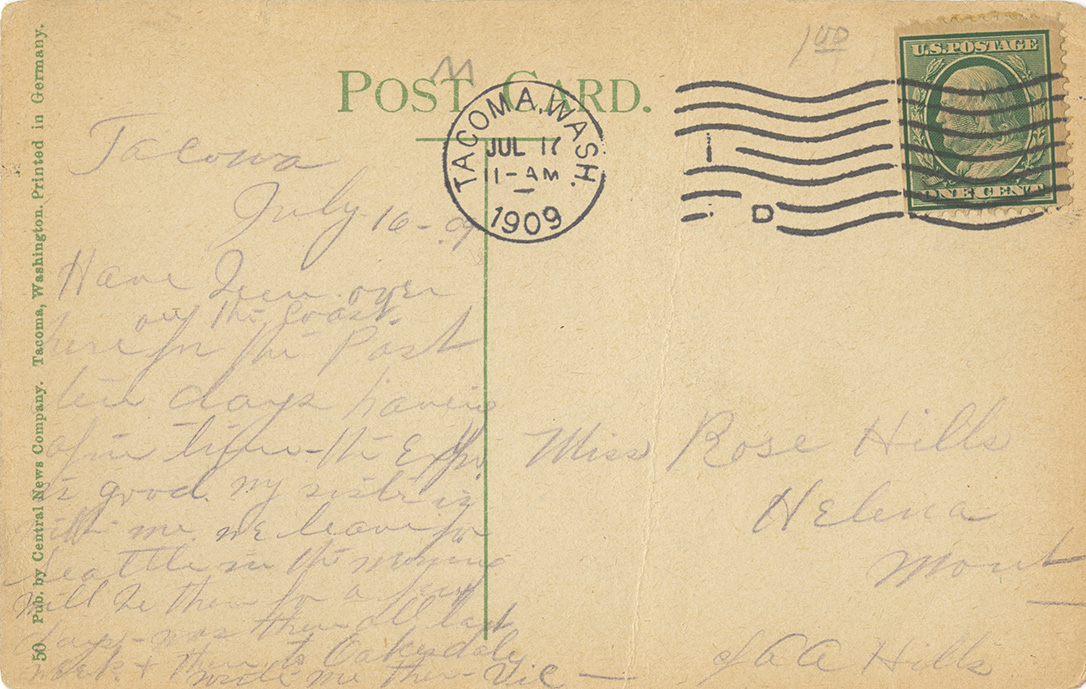 50. Pub. by Central News Company. Tacoma, Washington. Printed in Germany.
POST CARD.
100
U.S. POSTAGE
ONE CENT
TACOMA, WASH.
JUL 17
11-AM
1909
1
D
Tacoma
July 16-09
Have been over
on the Coast.
here for the Past
ten days having
a fine time - the Expo
is good. my sister is
with me. we leave for
Seattle in the morning
will be there for a few
days - was there all last
week & then to Oakesdale
write me there - Vic -
Miss Rose Hills
Helena
Mont
A A Hills